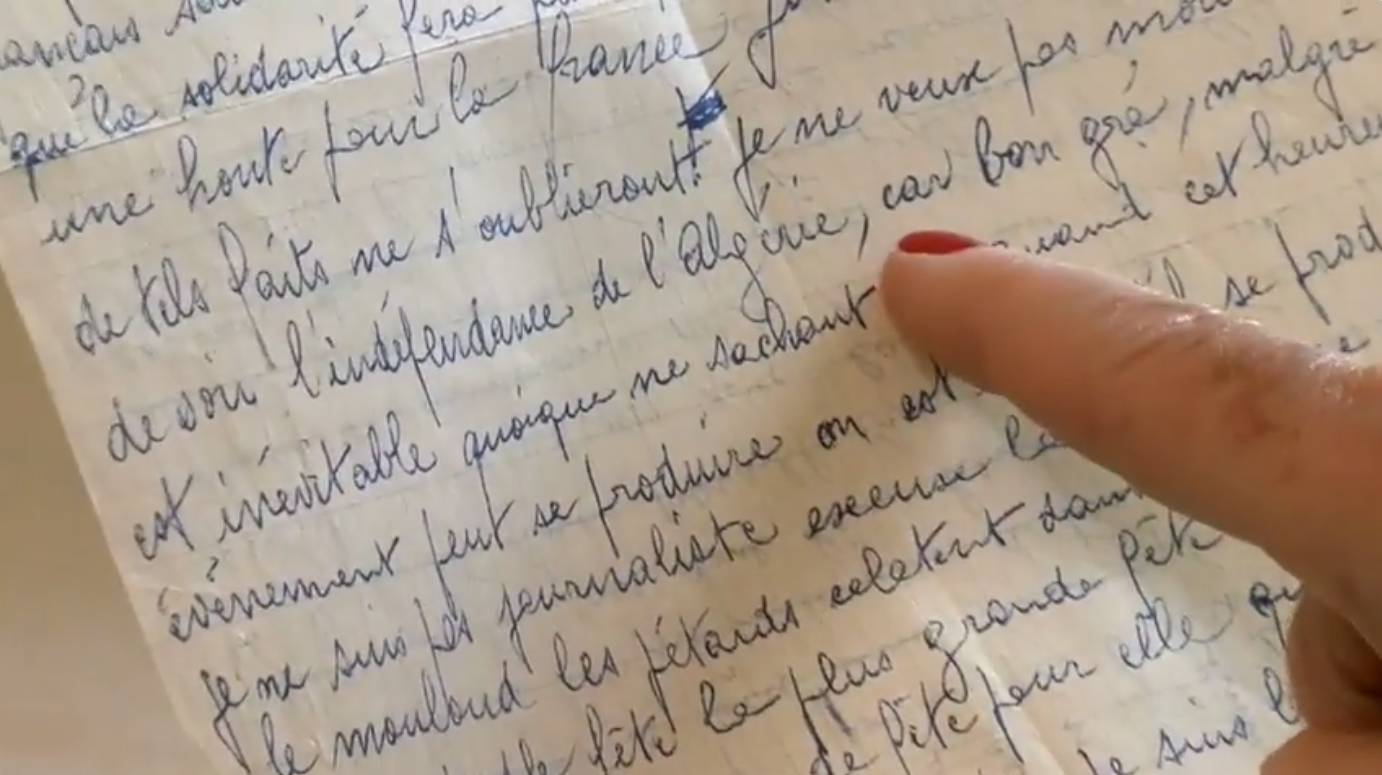 que la solidarité fera
une honte pour la France
de tels faits ne s'oublieront. Je ne veux pas
de voir l'indépendance de l'Algérie, car bon gré, malgré
est inévitable quoique ne sachant quand cet
évènement peut se produire on est se
je ne suis pas journaliste excuse
le mouloud les pétards eclatent dans
fête la plus grande fête
de fête pour elle
je suis